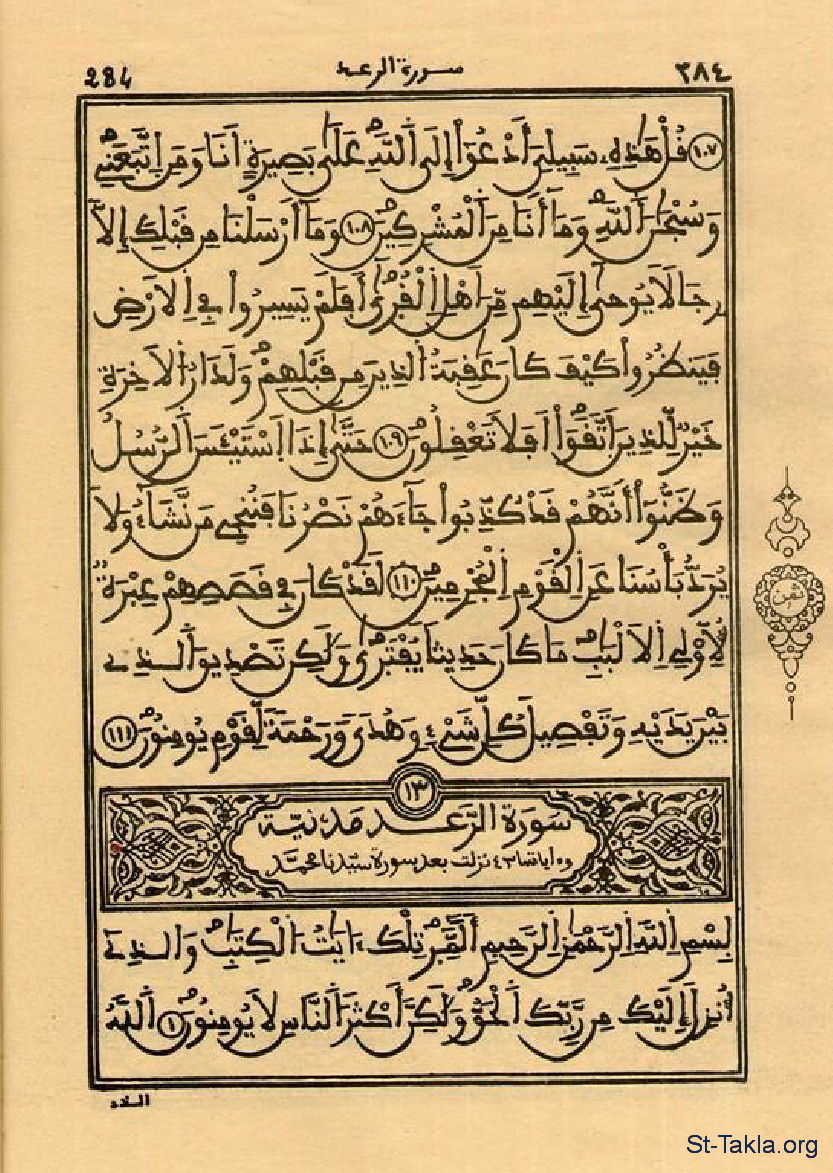 284 سورة الرعد ٢٨٤
١٠٧ قُلْ هَٰذِهِۦ سَبِيلِىَ أَدْعُوٓاْ إِلَى اَ۬للَّهِۖ عَلَىٰ بَصِيرَةٍ اَنَا وَمَنِ اِ۪تَّبَعَنِےۖ
وَسُبْحَٰنَ اَ۬للَّهِۖ وَمَآ أَنَا مِنَ اَ۬لْمُشْرِكِينَۖ ١٠٨ وَمَآ أَرْسَلْنَا مِن قَبْلِكَ إِلَّا
رِجَالًا يُوحَىٰٓ إِلَيْهِم مِّنَ اَهْلِ اِ۬لْقُرَىٰٓۖ أَفَلَمْ يَسِيرُواْ فِے اِ۬لَارْضِ
فَيَنظُرُواْ كَيْفَ كَانَ عَٰقِبَةُ اُ۬لذِينَ مِن قَبْلِهِمْۖ وَلَدَارُ اُ۬لَاخِرَةِ
خَيْرٌ لِّلذِينَ اَ۪تَّقَوَاْۖ اَفَلَا تَعْقِلُونَۖ ١٠٩ حَتَّىٰٓ إِذَا اَ۪سْتَيْـَٔسَ اَ۬لرُّسُلُ
وَظَنُّوٓاْ أَنَّهُمْ قَدْ كُذِّبُواْ جَآءَهُمْ نَصْرُنَا فَنُنجِے مَن نَّشَآءُۖ وَلَا
يُرَدُّ بَأْسُنَا عَنِ اِ۬لْقَوْمِ اِ۬لْمُجْرِمِينَۖ ١١٠ لَقَدْ كَانَ فِے قَصَصِهِمْ عِبْرَةٌ
لِّأُوْلِے اِ۬لَالْبَٰبِۖ مَا كَانَ حَدِيثاً يُفْتَرَىٰۖ وَلَٰكِن تَصْدِيقَ اَ۬لذِے
بَيْنَ يَدَيْهِ وَتَفْصِيلَ كُلِّ شَےْءٍ وَهُدىً وَرَحْمَةً لِّقَوْمٍ يُومِنُونَۖ ١١١
ثمن
١٣
سورة الرعد مدنية
وءاياتها ٤٣ نزلت بعد سورة سيدنا محمد
بِسْمِ اِ۬للَّهِ اِ۬لرَّحْمَٰنِ اِ۬لرَّحِيمِ أَلَٓمِّٓرَۖ تِلْكَ ءَايَٰتُ اُ۬لْكِتَٰبِۖ وَالذِےٓ
أُنزِلَ إِلَيْكَ مِن رَّبِّكَ اَ۬لْحَقُّۖ وَلَٰكِنَّ أَكْثَرَ اَ۬لنَّاسِ لَا يُومِنُونَۖ ١ اَ۬للَّهُ
الذے
St-Takla.org